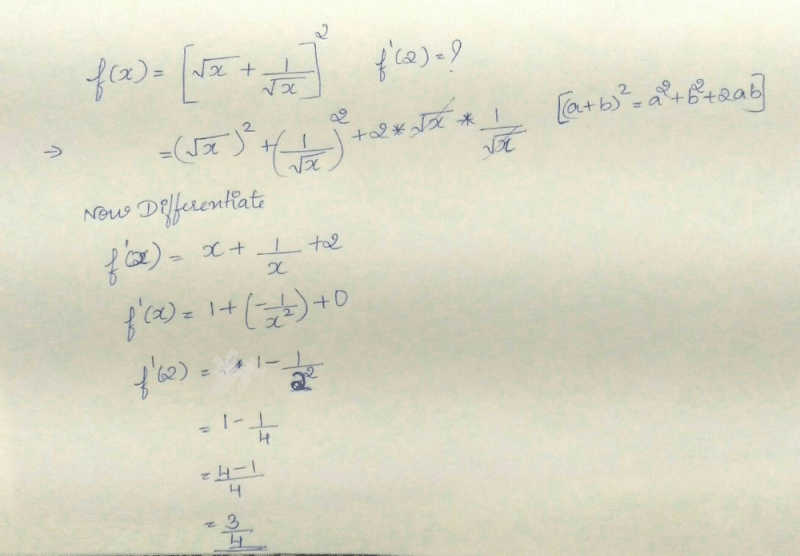 f(x) = [√x + 1/√x]² f'(2) = ?
⇒ = (√x)² + (1/√x)² + 2 * √x * 1/√x [(a+b)² = a² + b² + 2ab]
Now Differentiate
f'(x) = x + 1/x + 2
f'(x) = 1 + (-1/x²) + 0
f'(2) = 1 - 1/2²
= 1 - 1/4
= 4-1/4
= 3/4